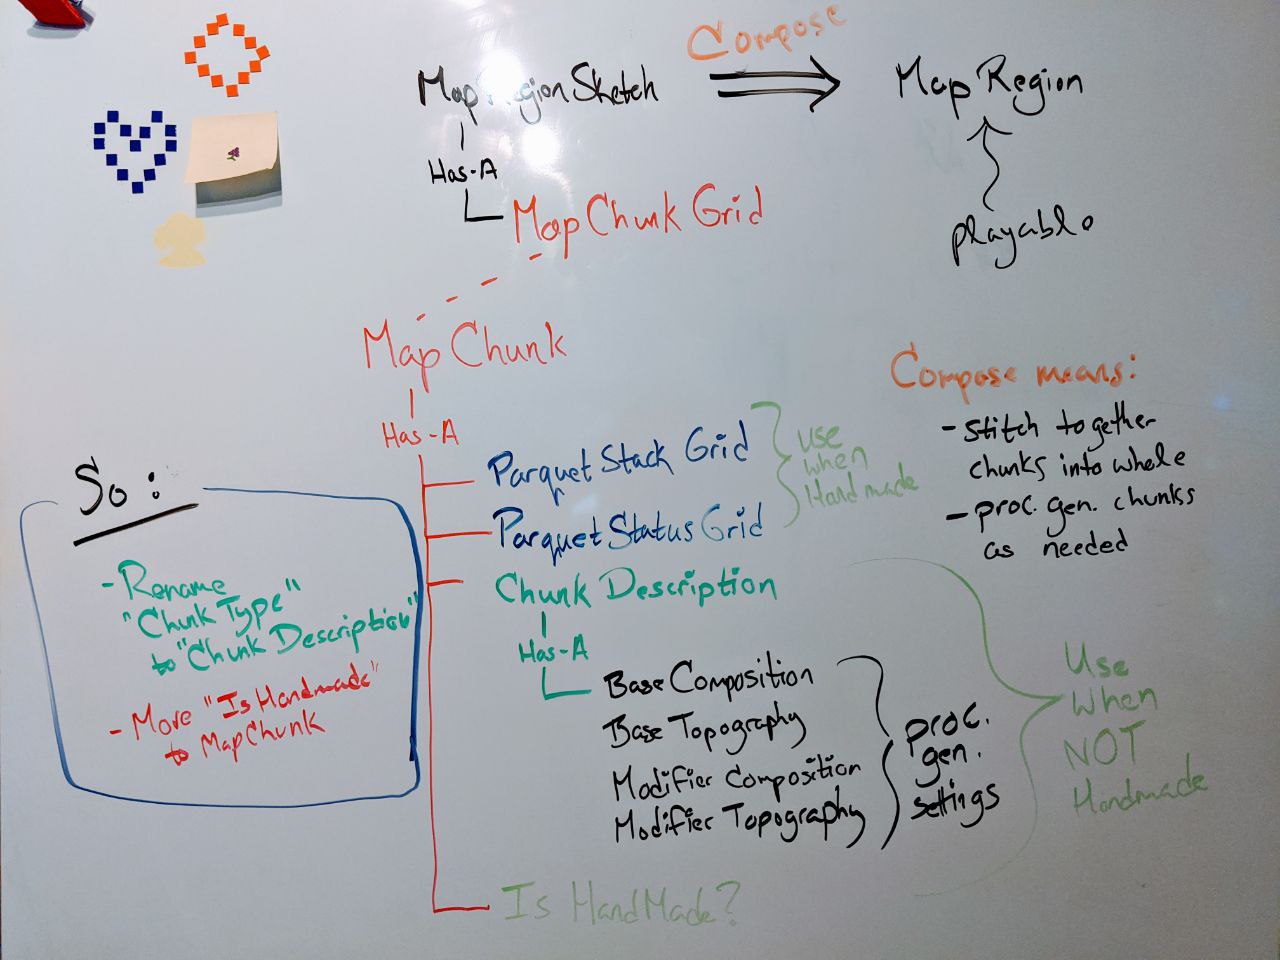 Compose
Map Region Sketch
Map Region
Has-A
Map Chunk Grid
playable
Map Chunk
Has-A
Parquet Stack Grid
Parquet Status Grid
Use
when
Handmade
Chunk Description
Has-A
Base Composition
Base Topography
Modifier Composition
Modifier Topography
proc.
gen.
settings
Use
When
NOT
Handmade
Is HandMade?
Compose means:
- stitch together
chunks into whole
- proc. gen. chunks
as needed
So:
- Rename
"Chunk Type"
to "Chunk Description"
- More "Is Handmade"
to MapChunk